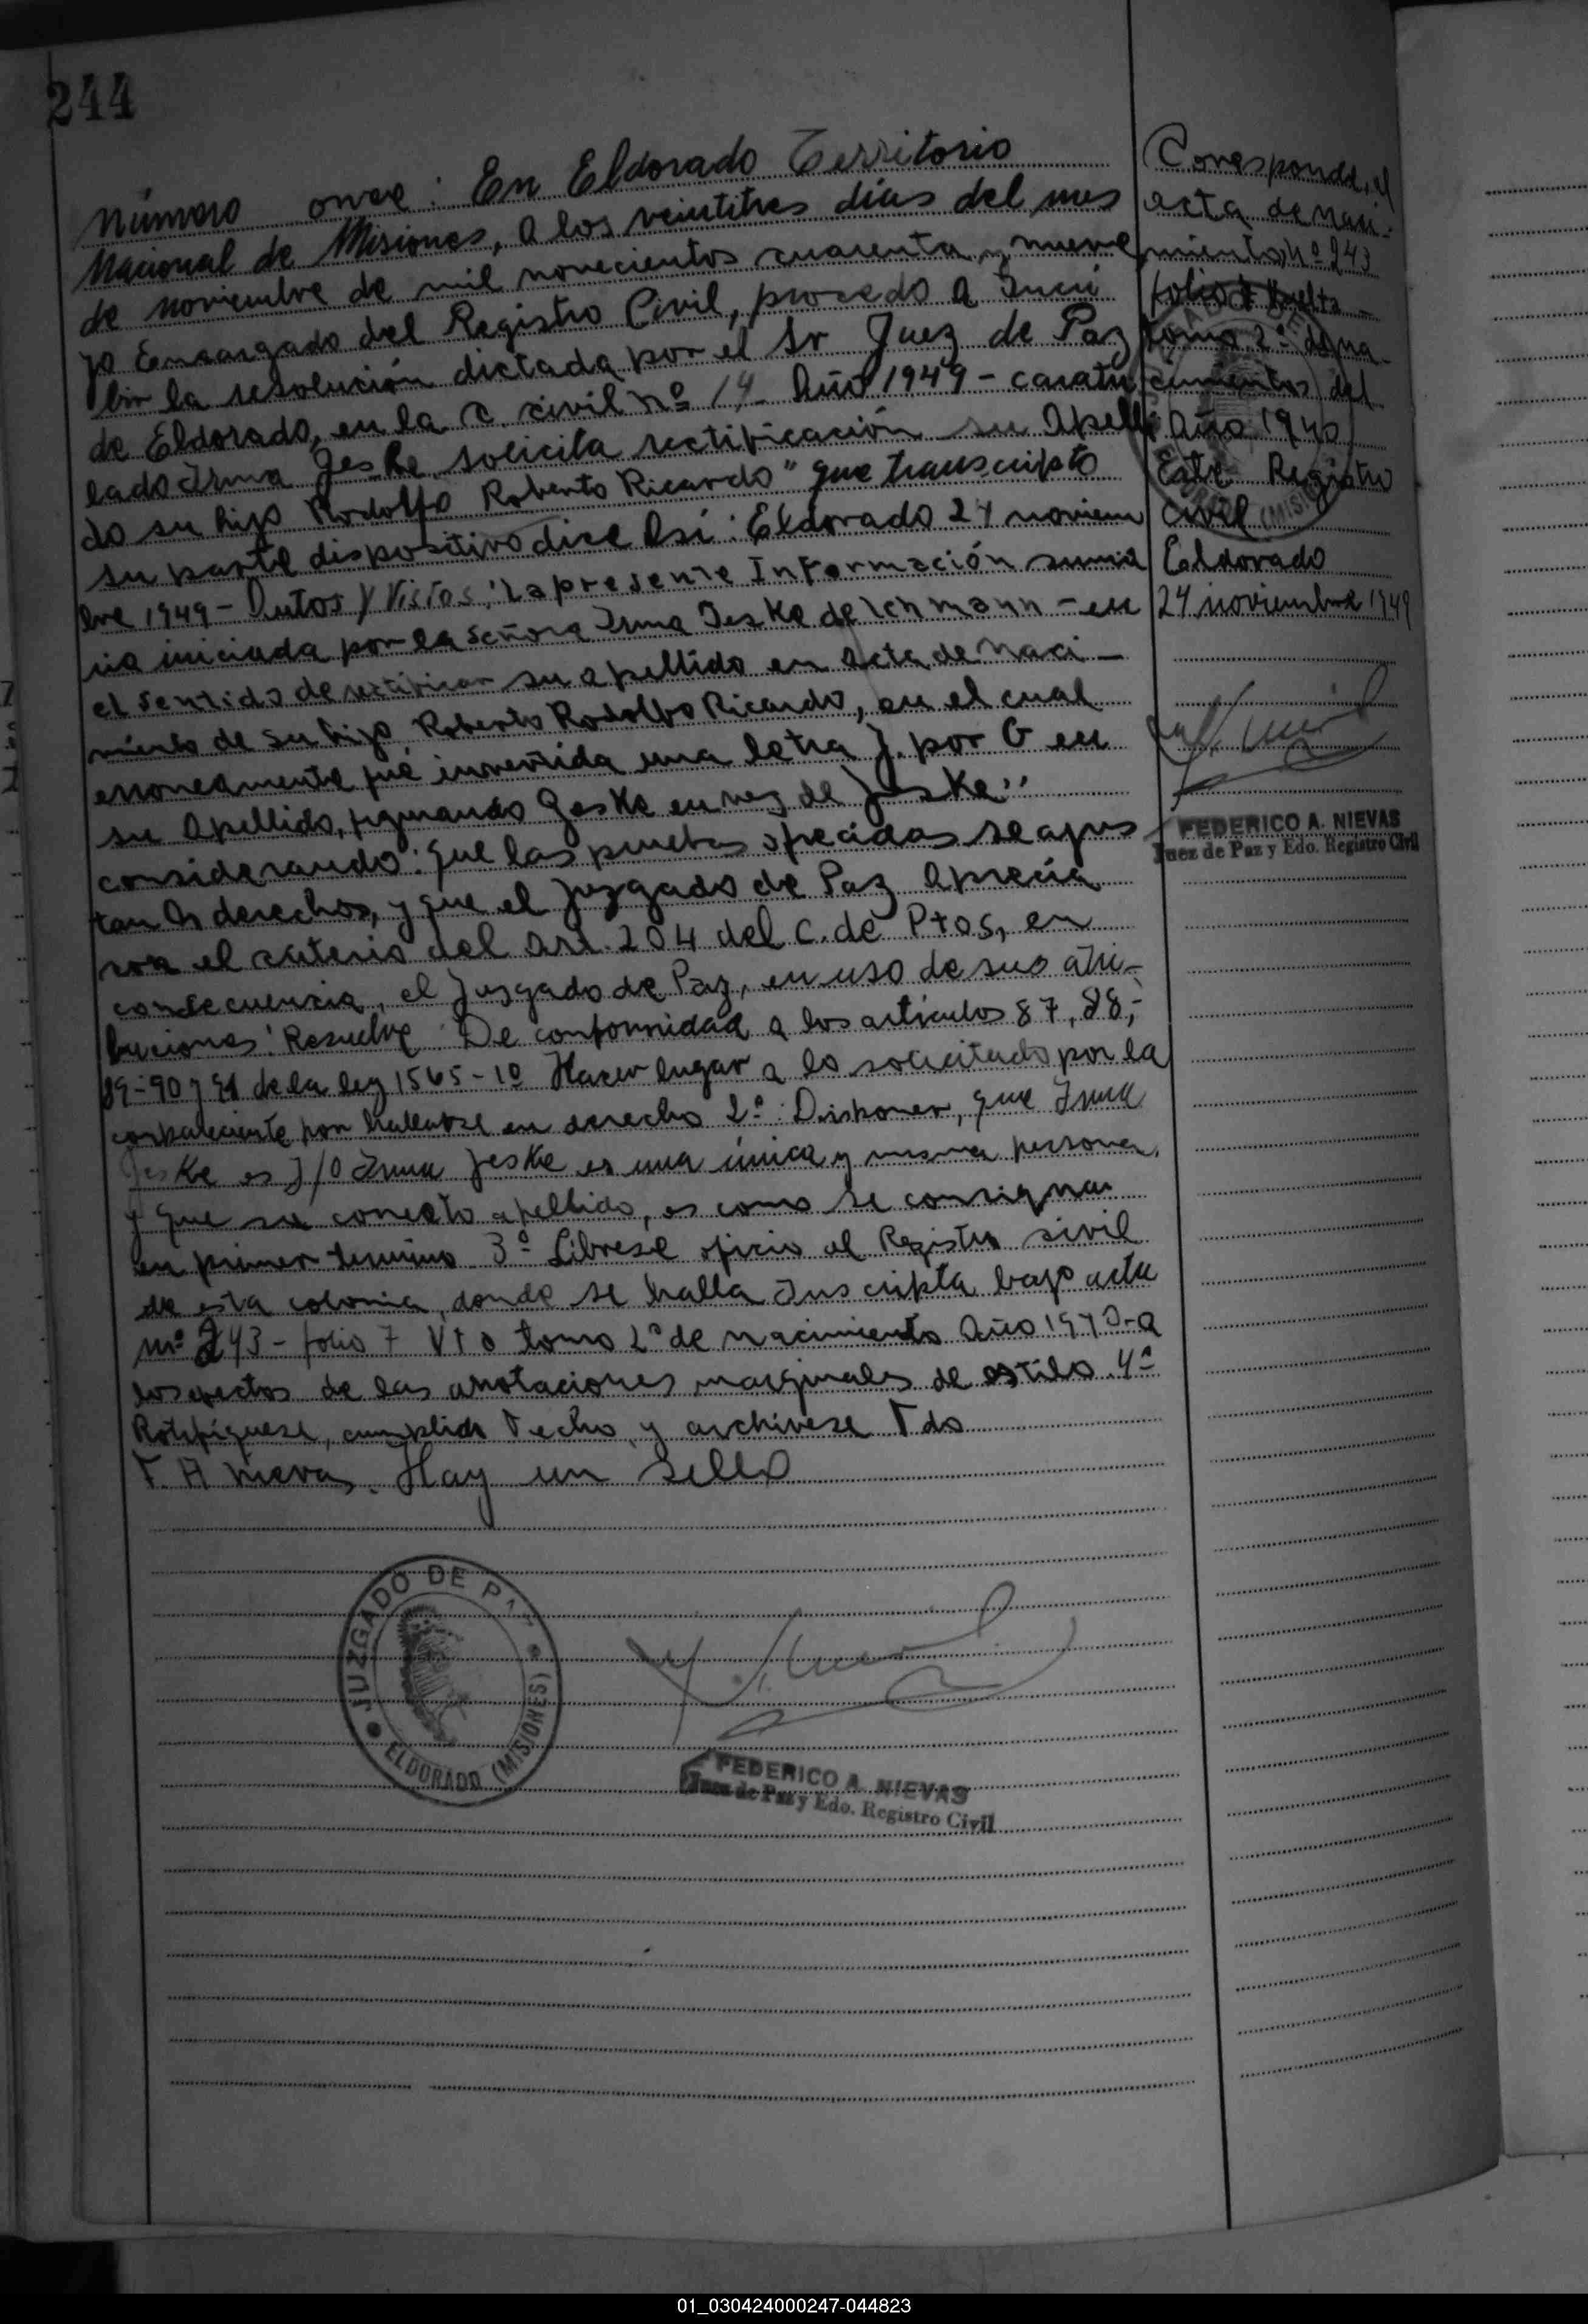 244
número once: En Eldorado Territorio
Nacional de Misiones, a los veintitres días del mes
de noviembre de mil novecientos cuarenta y nueve
yo Encargado del Registro Civil, procedo a Inscri
bir la resolución dictada por el Sr Juez de Paz
de Eldorado, en la C. civil nº 14 Año 1949 - caratu
lado Irma Jeske solicita rectificación su Apelli
do su hijo Rodolfo Roberto Ricardo" que transcripto
su parte dispositivo dice Así: Eldorado 24 noviem
bre 1949 - Autos y Vistos: La presente Información suma
ria iniciada por la Señora Irma Jeske de Ichmann - en
el sentido de rectificar su apellido en acta de naci -
miento de su hijo Roberto Rodolfo Ricardo, en el cual
erroneamente fué invertida una letra J. por G en
su Apellido, figurando Geske en vez de Jeske"
considerando: que las pruebas ofrecidas se ajus
tan a derechos, y que el Juzgado de Paz Aprecia
con el criterio del Art. 204 del C. de Ptos, en
consecuencia, el Juzgado de Paz, en uso de sus atri-
buciones: Resuelve De conformidad a los artículos 87, 88,-
89-90 y 91 de la ley 1565 - 1º Hacer lugar a lo solicitado por la
compareciente por hallarse en derecho 2º: Disponer, que Irma
Jeske es y/o Irma Jeske es una única y misma persona,
y que su correcto apellido, es como se consigna
en primer termino 3º Librese oficio al Registro sivil
de esta colonia, donde se halla Inscripta bajo acta
nº 243 - folio 7 Vto tomo 2º de nacimiento Año 1940 - a
los efectos de las anotaciones marginales de estilo. 4º
Notifíquese, cumplido Fecho, y archivese Fdo
F. A Nievas. Hay un Sello
JUZGADO DE PAZ
ELDORADO (MISIONES)
FEDERICO A. NIEVAS
Juez de Paz y Edo. Registro Civil
Corresponde, al
acta de naci-
miento, nº 243
folio 7 vuelta -
tomo 2º de na-
cimientos del
Año 1940
Este Registro
Civil
Eldorado
24 noviembre 1949
FEDERICO A. NIEVAS
Juez de Paz y Edo. Registro Civil
01_030424000247-044823